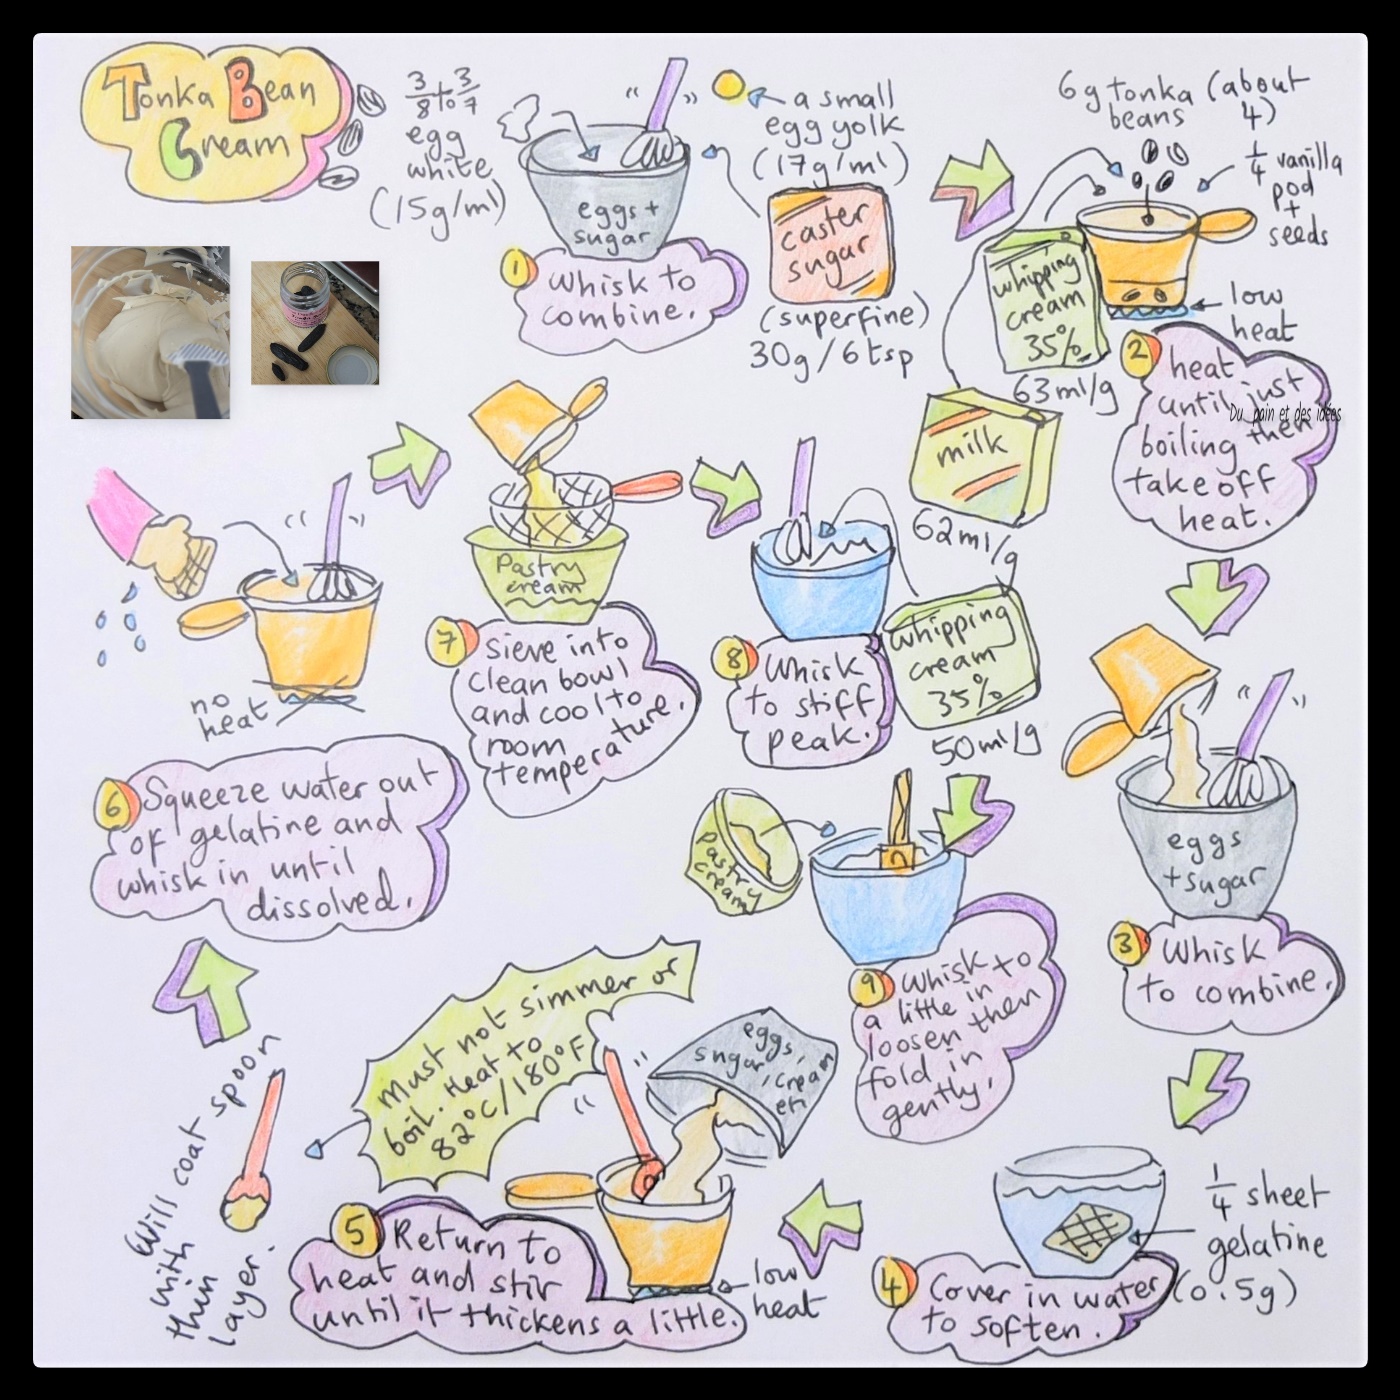 Tonka Bean
Cream
3/8 to 3/7
egg
white
(15g/ml)
eggs +
sugar
a small
egg yolk
(17g/ml)
caster
sugar
(superfine)
30g/6tsp
1 Whisk to
combine.
6g tonka (about
beans 4)
1/4 vanilla
pod
+
seeds
whipping
cream
35%
63ml/g
low
heat
milk
62ml/g
2 heat
until just
boiling then
take off
heat.
Du pain et des idées
eggs
+sugar
3 Whisk
to combine.
1/4 sheet
gelatine
(0.5g)
4 Cover in water
to soften.
eggs,
sugar, cream
etc
low
heat
5 Return to
heat and stir
until it thickens a little.
Must not simmer or
boil. Heat to
82°C/180°F
Will coat spoon
with
thin
layer.
no
heat
6 Squeeze water out
of gelatine and
whisk in until
dissolved.
Pastry
cream
7 Sieve into
clean bowl
and cool to
room
temperature.
whipping
cream
35%
50ml/g
8 Whisk
to stiff
peak.
Pastry
cream
9 Whisk to
a little in
loosen then
fold in
gently.